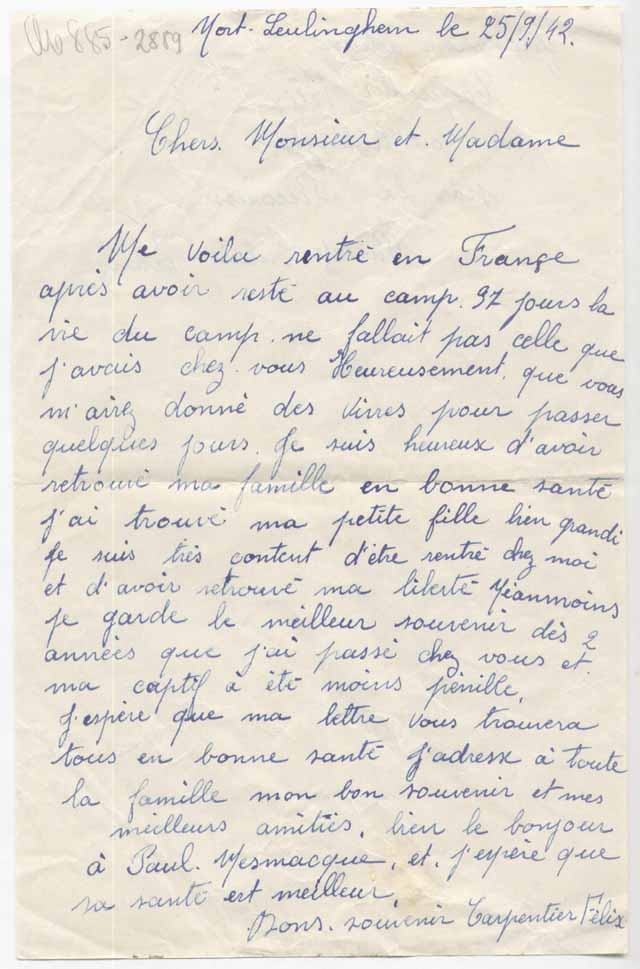 885-2859
Nort-Leulinghem le 25/9/42.
Chers. Monsieur et. Madame
Me voila rentré en Françe
après avoir resté au camp. 97 jours la
vie du camp. ne fallait pas celle que
j'avais chez. vous Heureusement. que vous
m'airez donné des vivres pour passer
quelques jours. Je suis heureux d'avoir
retrouvé ma famille en bonne santé
j'ai trouvé ma petite fille bien grandi
Je suis très content d'être rentré chez moi
et d'avoir retrouvé ma liberté Néanmoins
je garde le meilleur souvenir dès 2
années que j'ai passé chez vous et.
ma captif à été moins pénille.
J'espère que ma lettre vous trouvera
tous en bonne santé j'adresse à toute
la famille mon bon souvenir et mes
meilleurs amitiés. bien le bonjour
à Paul. et. j'espère que
sa santé est meilleur.
Bons. souvenir Carpentier Félix